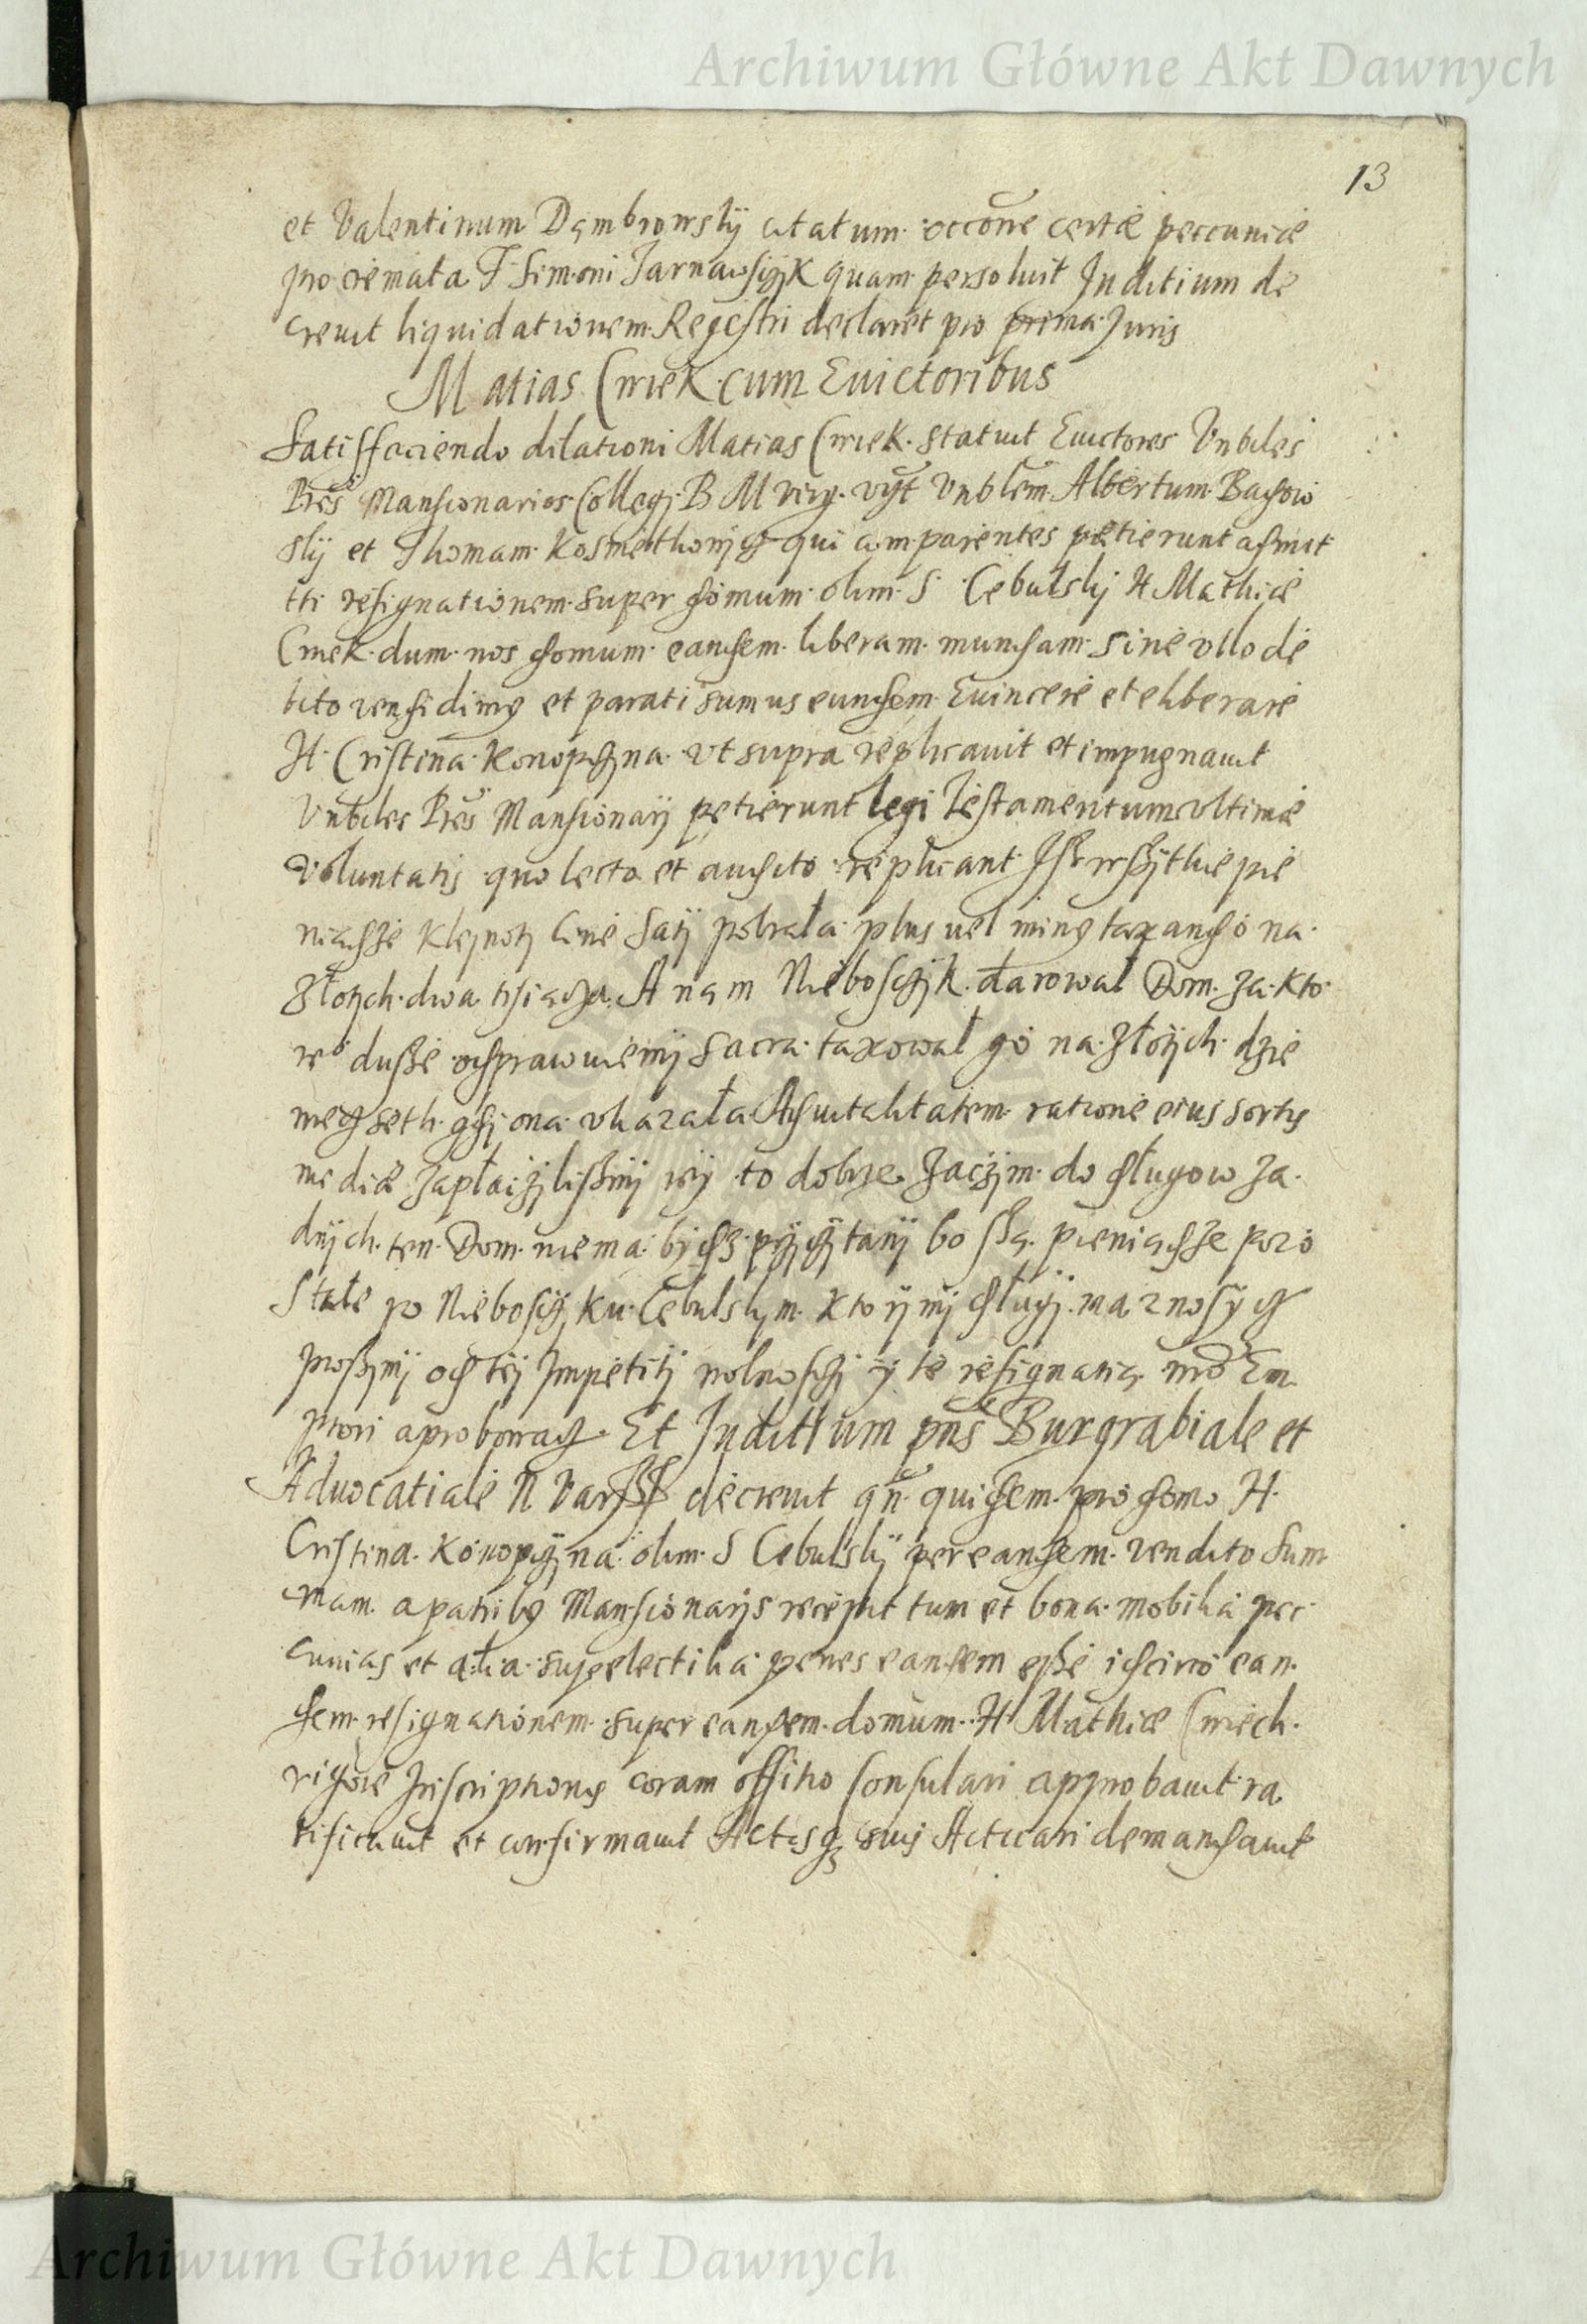 Archiwum Główne Akt Dawnych
13
et Valentinum Dąmbrowsky citatum occone certæ peccuniæ
pro cremata F. Simoni Tarnawsky K quam persoluit Juditium de
creuit liquidationem Regestri declaret pro prima Juris
Matias Cwiek cum Euictoribus
Satisfaciendo dilationi Matias Cwiek statuit Euictores Vnbiles
Pres Mansionarios Collegj B M virg. vyt Vnblem Albertum Badow
sky et Thomam Kosmithowic qui comparentes petierunt admit
tti resignationem super domum olim S. Cebulsky H Mathiæ
Cwiek dum nos domum eandem liberam mundam sine vllo de
bito vendidimus et parati sumus eundem Euincere et eliberare
H. Cristina Konopczyna vt supra replicauit et impugnauit
Vnbiles Pres Mansionarij petierunt legi Testamentum vltimæ
voluntatis quo lecto et audito replicant Isz wszytkie pie
niądze kleynoty cine saty pobrała plus uel minus taxando na
złotych dwa tysiącza A nam Nieboscyk darował Dom za kto
re dusze odprawuiemy sacra taxował go na złotych dzie
wecz seth gdy ona vkazała Aduitalitatem ratione eius sortis
mediæ zapłacylismy iey to dobrze Zaczym do długow za
dnych ten Dom niema bydz przyczytany bo są pieniądze pozo
stałe po Nieboscyku Cebulskym ktorymy dlugy ma znosycz
prosymy od tey Impetity wolnoscy y te resignatią. mdo Em
ptori aprobowacz Et Juditium pns Burgrabiale et
Aduocatiale N Vars decreuit qn quidem pro domo H.
Cristina Konopczyna olim S Cebulsky per eandem vendito sum
mam a patribus Mansionarys recepit tum et bona mobilia pec
cunias et alia supelectilia penes eandem esse idcirco ean
dem resignationem super eandem domum H Mathiæ Cwiech
vigore Inscriptionis coram officio Consulari approbauit ra
tificauit et confirmauit Actisq suis Acticari demandauit
Archiwum Główne Akt Dawnych